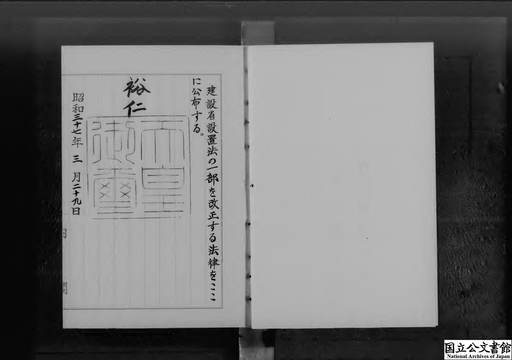 建設省設置法の一部を改正する法律をここ
に公布する。
裕仁
天皇御璽
昭和三十七年三月二十九日
内閣
国立公文書館
National Archives of Japan